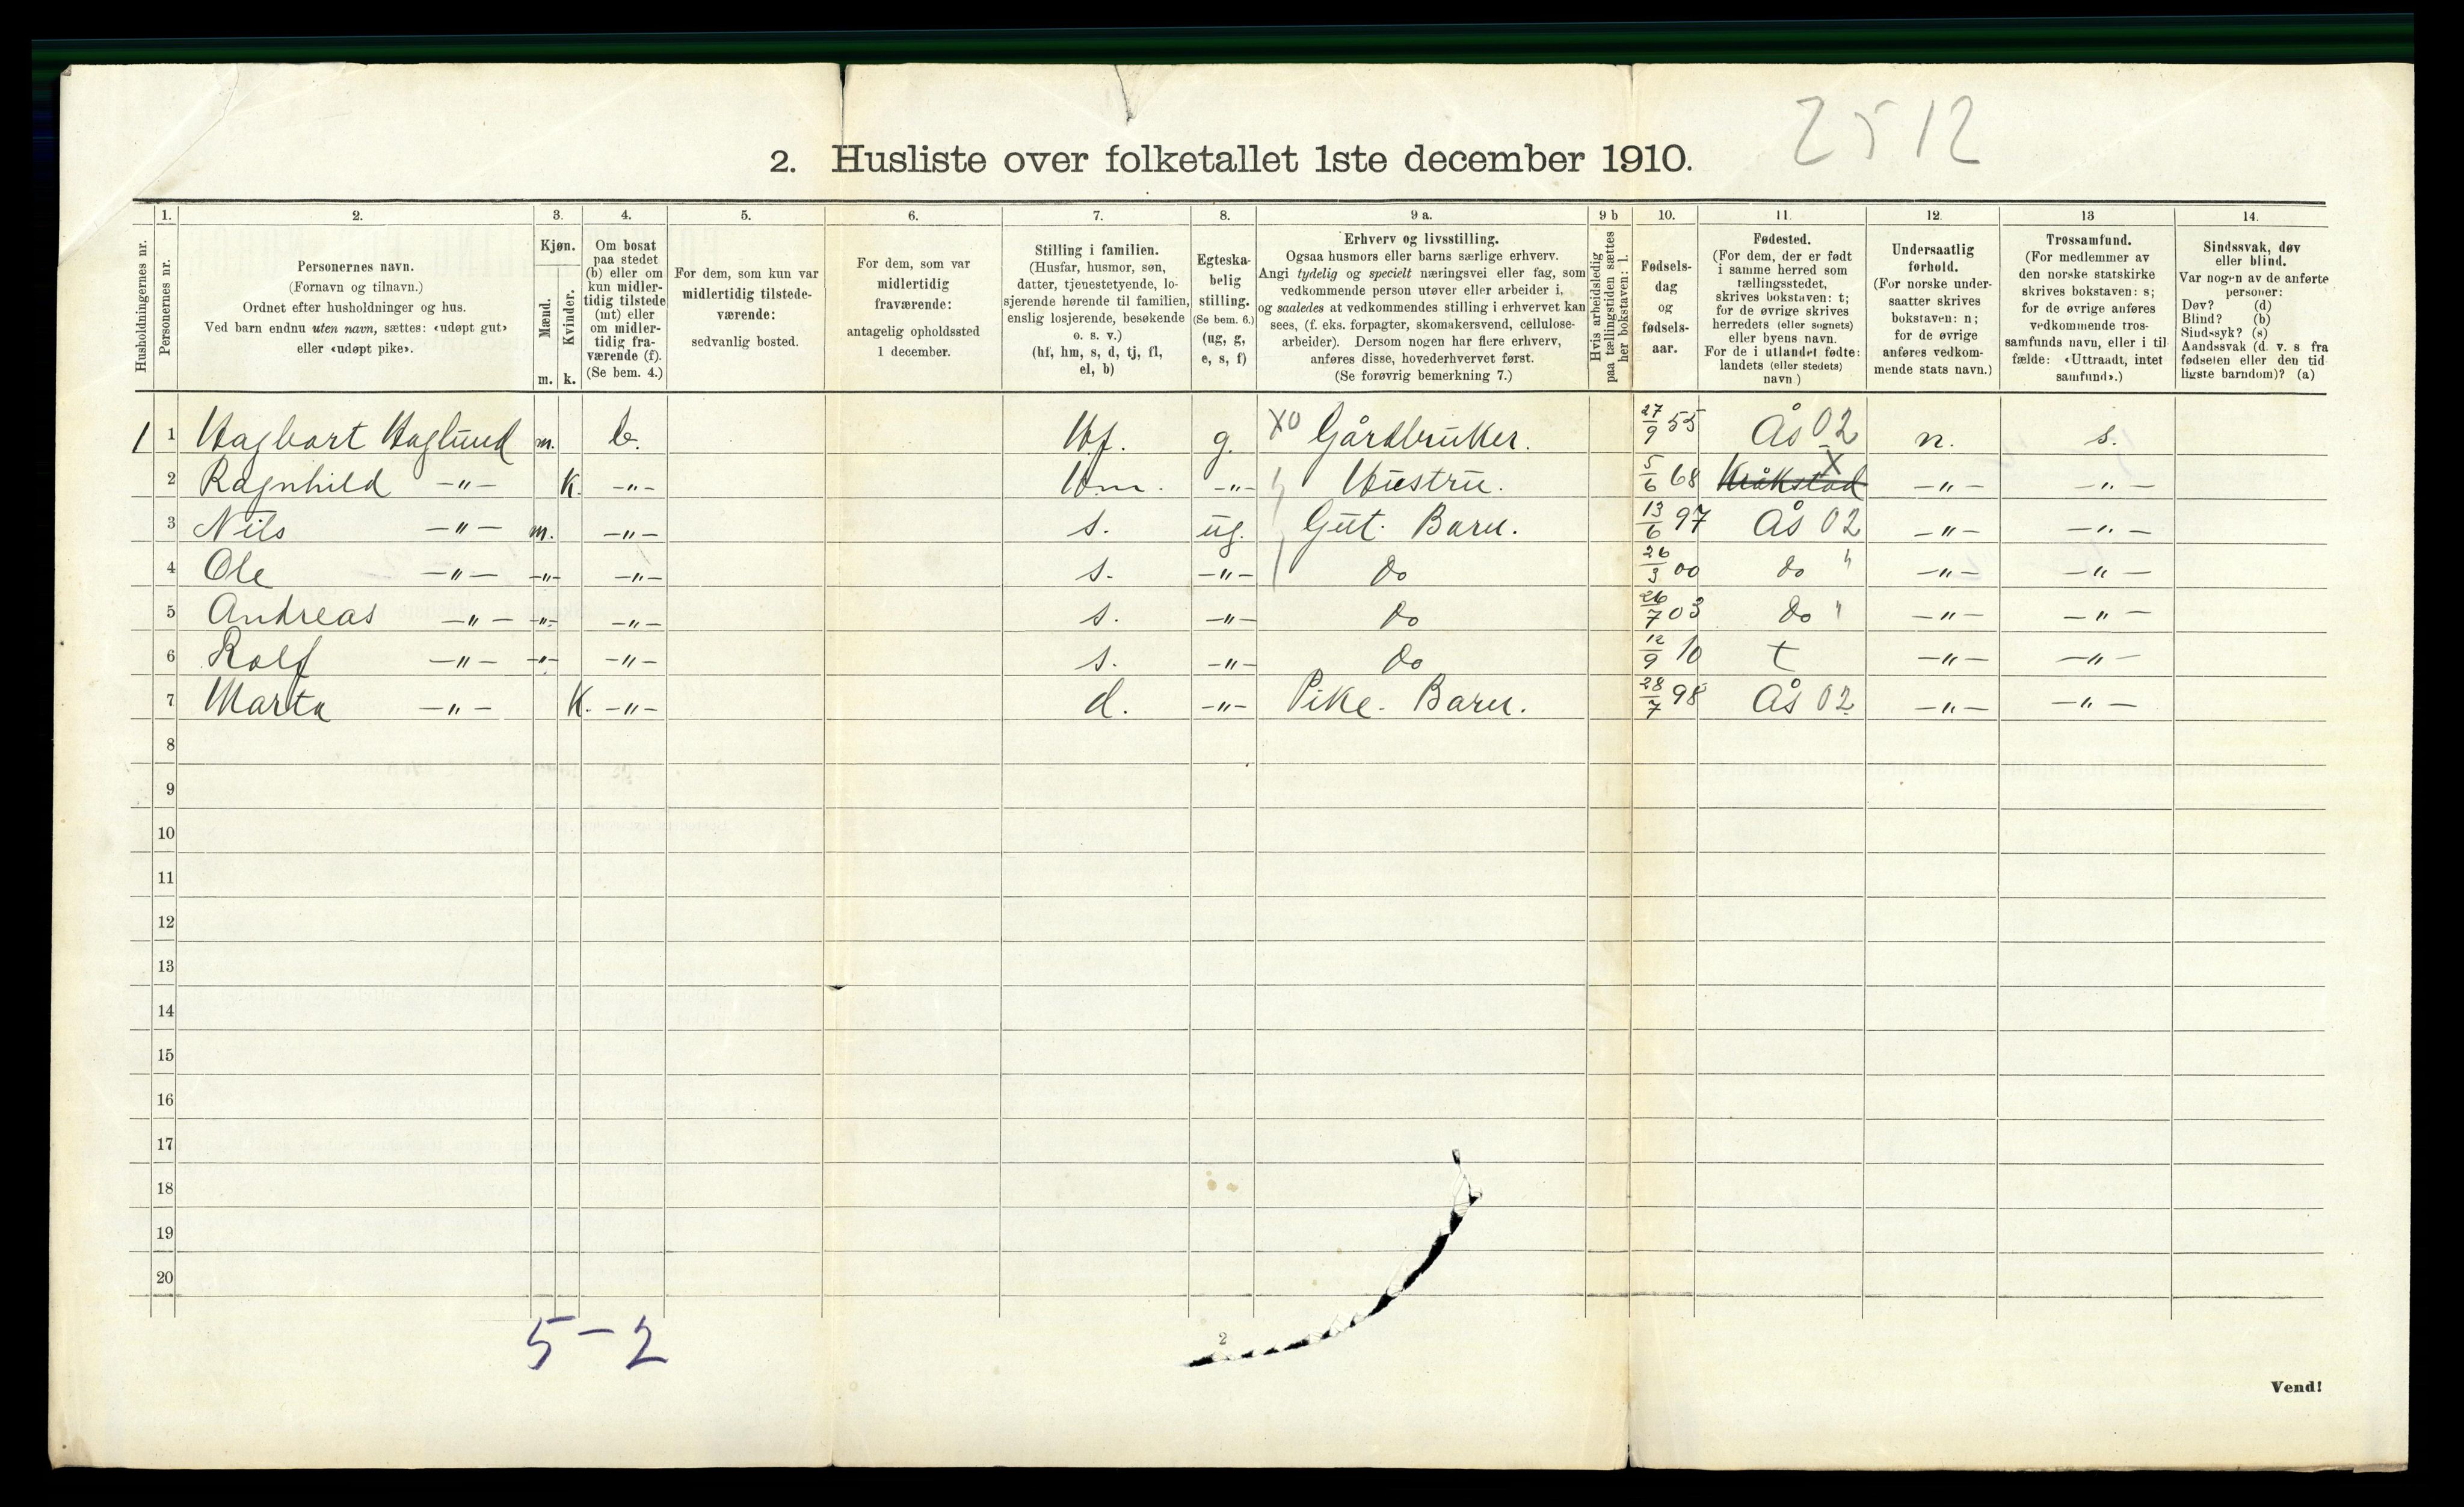 2512
2. Husliste over folketallet 1ste december 1910.
1. 2. 3. 4. 5. 6. 7. 8. 9 a. 9 b 10. 11. 12. 13 14.
Husholdningernes nr.
Personernes nr.
Personernes navn.
(Fornavn og tilnavn.)
Ordnet efter husholdninger og hus.
Ved barn endnu uten navn, sættes: «udøpt gut»
eller «udøpt pike».
Kjøn.
Mænd.
Kvinder.
m. k.
Om bosat
paa stedet
(b) eller om
kun midler-
tidig tilstede
(mt) eller
om midler-
tidig fra-
værende (f).
(Se bem. 4.)
For dem, som kun var
midlertidig tilstede-
værende:
sedvanlig bosted.
For dem, som var
midlertidig
fraværende:
antagelig opholdssted
1 december.
Stilling i familien.
(Husfar, husmor, søn,
datter, tjenestetyende, lo-
sjerende hørende til familien,
enslig losjerende, besøkende
o. s. v.)
(hf, hm, s, d, tj, fl,
el, b)
Egteska-
belig
stilling.
(Se bem. 6.)
(ug, g,
e, s, f)
Erhverv og livsstilling.
Ogsaa husmors eller barns særlige erhverv.
Angi tydelig og specielt næringsvei eller fag, som
vedkommende person utøver eller arbeider i,
og saaledes at vedkommendes stilling i erhvervet kan
sees, (f. eks. forpagter, skomakersvend, cellulose-
arbeider). Dersom nogen har flere erhverv,
anføres disse, hovederhvervet først.
(Se forøvrig bemerkning 7.)
Hvis arbeidsledig
paa tællingstiden sættes
her bokstaven: l.
Fødsels-
dag
og
fødsels-
aar.
Fødested.
(For dem, der er født
i samme herred som
tællingsstedet,
skrives bokstaven: t;
for de øvrige skrives
herredets (eller sognets)
eller byens navn.
For de i utlandet fødte:
landets (eller stedets)
navn)
Undersaatlig
forhold.
(For norske under-
saatter skrives
bokstaven: n;
for de øvrige
anføres vedkom-
mende stats navn.)
Trossamfund.
(For medlemmer av
den norske statskirke
skrives bokstaven: s;
for de øvrige anføres
vedkommende tros-
samfunds navn, eller i til
fælde: «Uttraadt, intet
samfund».)
Sindssvak, døv
eller blind.
Var nogen av de anførte
personer:
Døv? (d)
Blind? (b)
Sindssyk? (s)
Aandssvak (d. v. s fra
fødselen eller den tid
ligste barndom)? (a)
1 1 Hagbart Haglund m. b. Hf. g. X0 Gårdbruker. 27/9 55 Ås 02 n. s.
2 Ragnhild -"- K. -"- Hm. -"- Hustru. 5/6 68 Kråkstad X -"- -"-
3 Nils -"- m. -"- s. ug. Gut. Barn. 13/6 97 Ås 02 -"- -"-
4 Ole -"- -"- -"- s. -"- do 26/3 00 do " -"- -"-
5 Andreas -"- -"- -"- s. -"- do 26/7 03 do " -"- -"-
6 Rolf -"- -"- -"- s. -"- do 12/9 10 t -"- -"-
7 Marta -"- K. -"- d. -"- Pike. Barn. 28/7 98 Ås 02 -"- -"-
8
9
10
11
12
13
14
15
16
17
18
19
20
5-2
2
Vend!